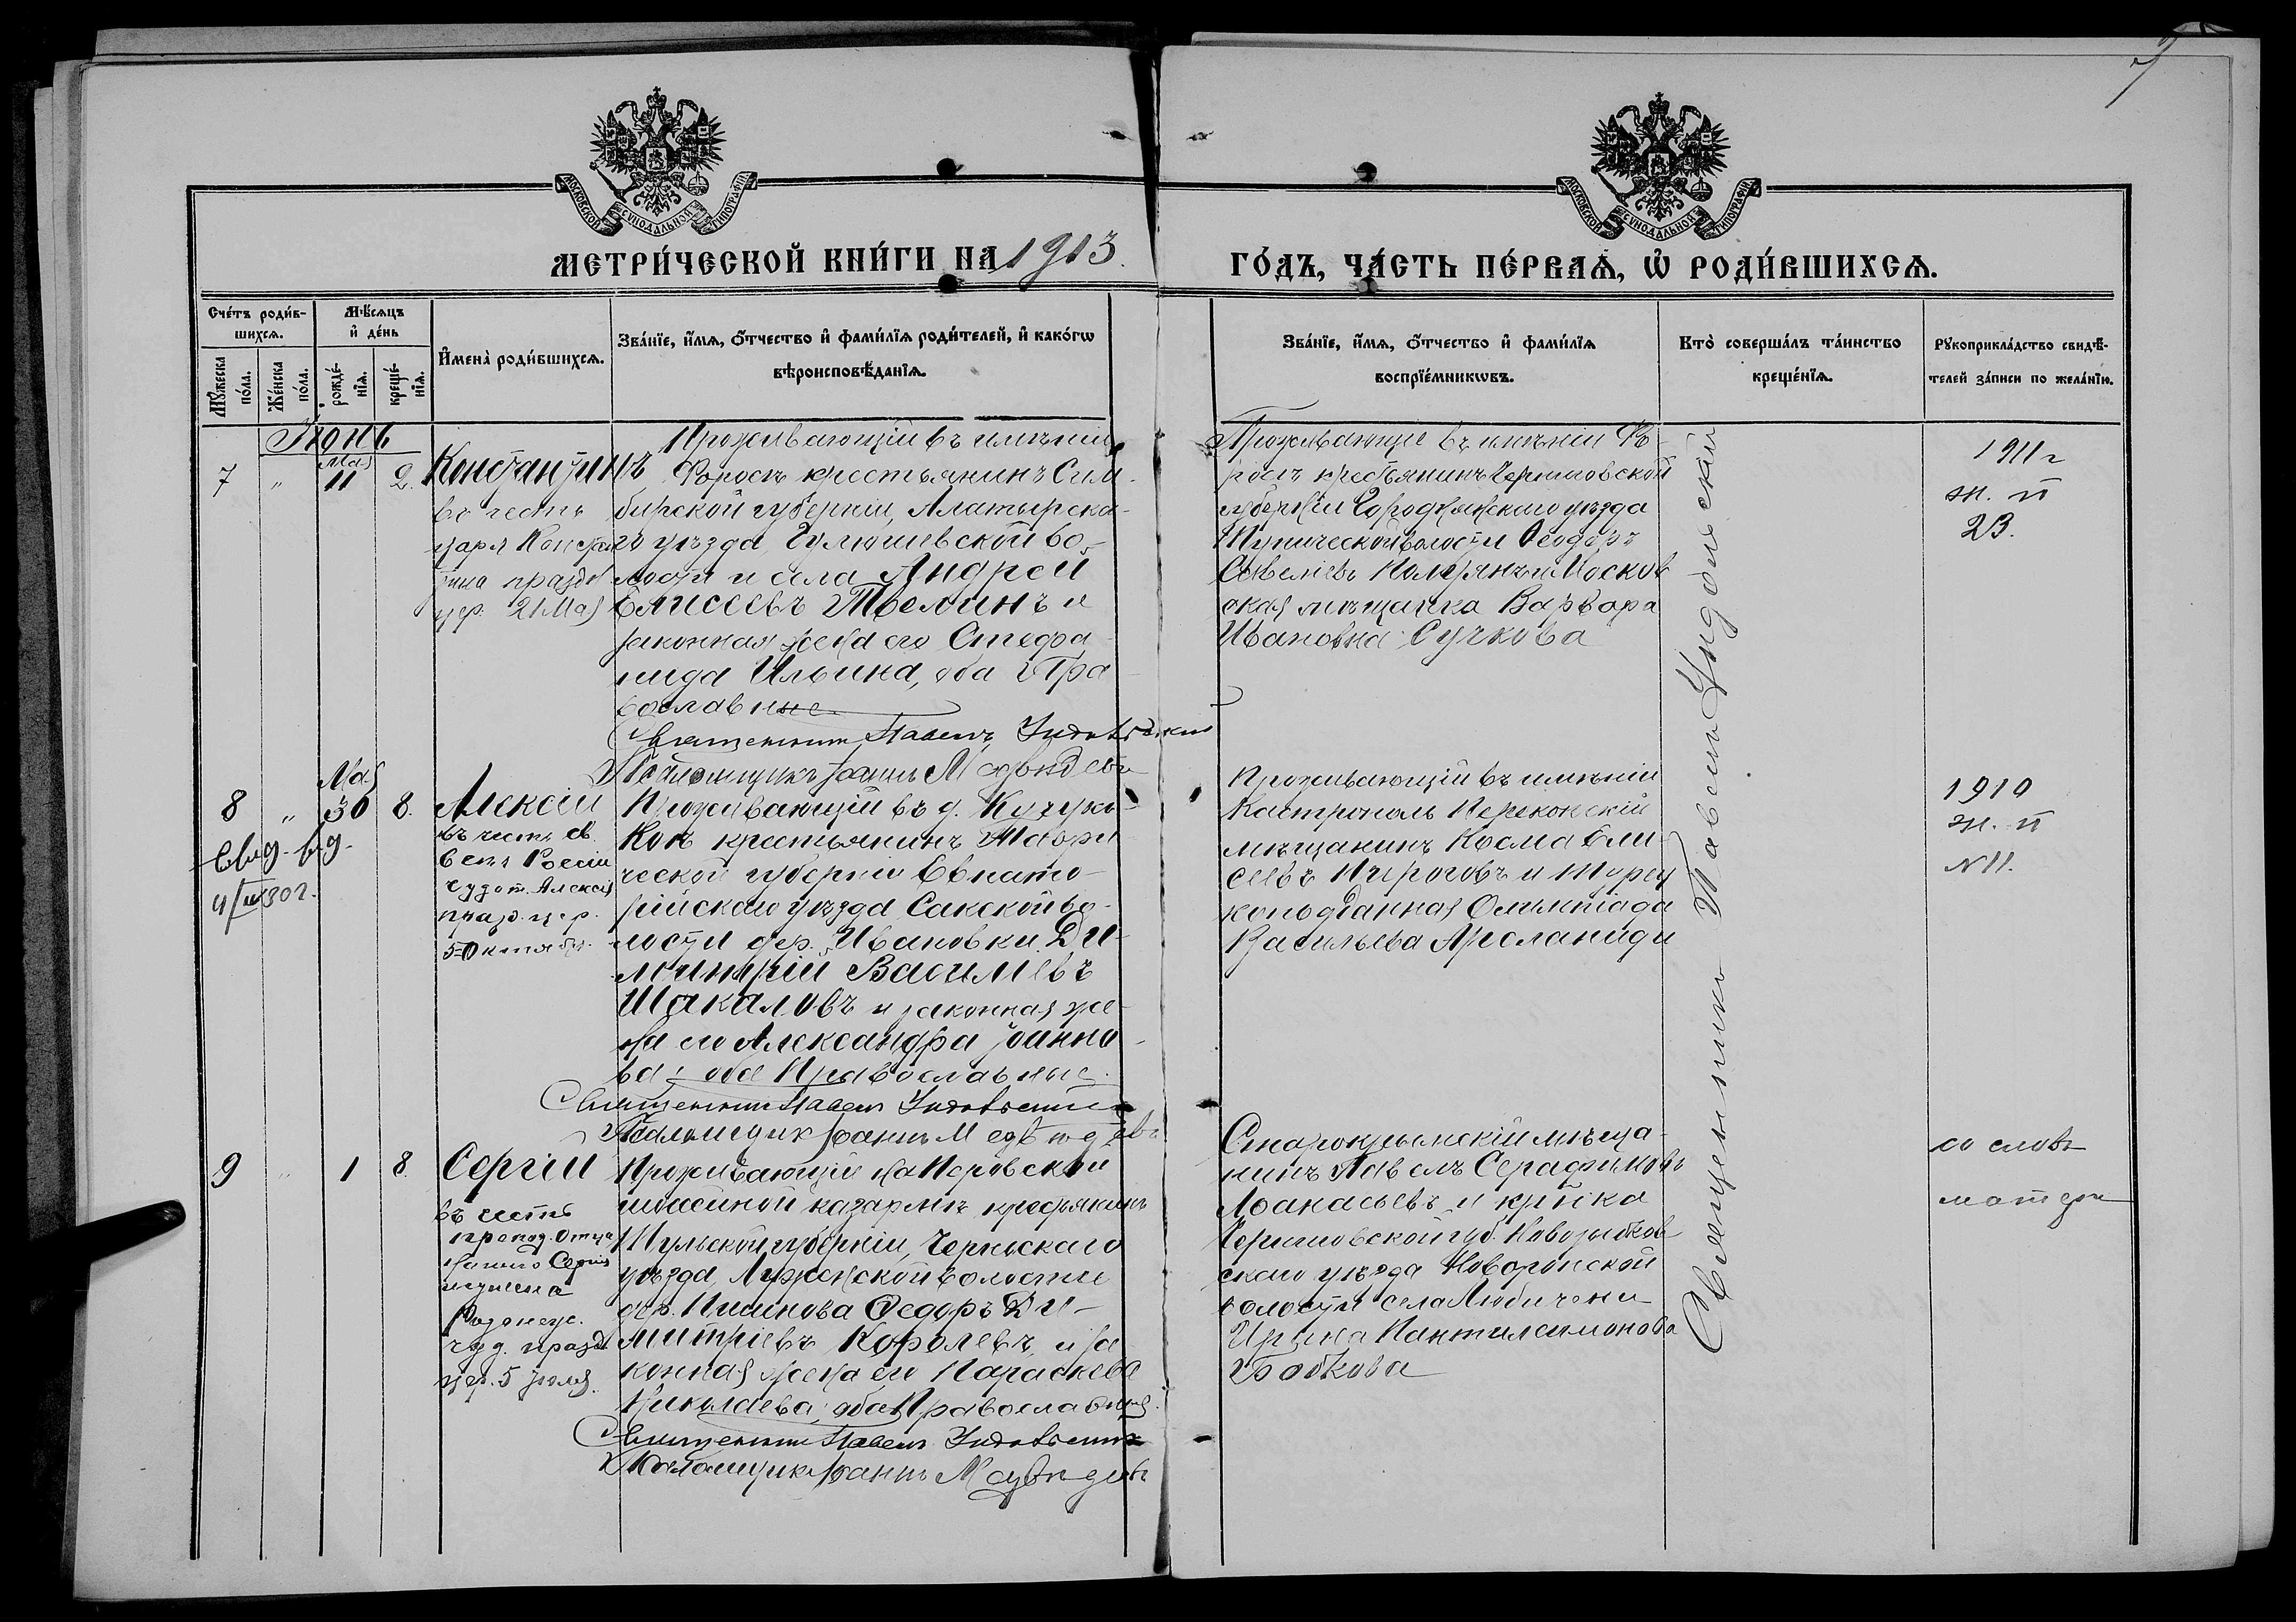 МОСКОВСКОЙ СѴНОДАЛЬНОЙ ТИПОГРАФІИ
МОСКОВСКОЙ СѴНОДАЛЬНОЙ ТИПОГРАФІИ
МЕТРИ́ЧЕСКОЙ КНИ́ГИ НА 1913.
ГО́ДЪ, ЧА́СТЬ ПЕ́РВАѦ, Ѡ҆ РОДИ́ВШИХСѦ.
Сче́тъ роди́в-
шихсѧ.
Мꙋ́жеска
по́ла.
Же́нска
по́ла.
Мѣ́сѧцъ
и҆ де́нь
рожде́-
нїѧ.
креще́-
нїѧ.
И҆мена̀ роди́вшихсѧ.
Зва́нїе, и҆́мѧ, ѻ҆́тчество и҆ фами́лїѧ роди́телей, и҆ како́гѡ
вѣроисповѣ́данїѧ.
Зва́нїе, и҆́мѧ, ѻ҆́тчество и҆ фами́лїѧ
воспрїе́мникѡвъ.
Кто̀ соверша́лъ та́инство
креще́нїѧ.
Рꙋкоприкла́дство свидѣ́-
телей за́писи по жела́нїю.
Іюнь
7 " Мая 11 2.
Константинъ
въ честь
царя Констан
тина праздн
цер. 21 Мая
Проживающій въ имѣніи
Форосъ крестьянинъ Сим-
бирской губерніи, Алатырска-
го уѣзда, Чуюшевской во-
лости и села Андрей
Елисеевъ Тремлинъ и
законная жена его Стефа
нида Ильина, оба Пра
вославные
Священникъ Павелъ Индовѣцкій
Псаломщикъ Іоаннъ Медвѣдевъ
Проживающіе въ имѣніи Фо-
росъ крестьянинъ Черниговской
губерніи Городнянскаго уѣзда
Тупической волости Ѳеодоръ
Савеліевъ и Москов
ская мѣщанка Варвара
Ивановна Сучкова
1911 г
ж. п
23.
8 " Мая 30 8.
Свид. выд.
4/III 30 г.
Алексій
въ честь св
всея Россіи
чудот. Алексія
празд. цер.
5 Октября.
Проживающій въ д. Кучукъ-
Кой крестьянинъ Таври
ческой губерніи Евпато-
рійскаго уѣзда Сакской во-
лости дер. Ивановки Ди-
митрій Василіевъ
Шакаловъ и законная же-
на его Александра Іоанно-
ва; оба Православные.
Священникъ Павелъ Индовѣцкій
Псаломщикъ Іоаннъ Медвѣдевъ
Проживающій въ имѣніи
Кастрополь Перекопскій
мѣщанинъ Косма Ели-
сеевъ Пироговъ и Турец
коподданная Олимпіада
Васильева Арсланиди
1910
ж. п
N 11.
9 " 1 8.
Сергій
въ честь
препод. Отца
нашего Сергія
игумена
Радонеж.
чуд. празд
цер. 5 Іюля.
Проживающій на Перовской
шоссейной казармѣ крестьянинъ
Тульской губерніи, Чернскаго
уѣзда, Луженской волости
дер. Пишкова Ѳедоръ Ди-
митріевъ Королевъ, и за
конная жена его Параскева
Николаева, оба Православныя.
Священникъ Павелъ Индовѣцкій
Псаломщикъ Іоаннъ Медвѣдевъ
Старокрымскій мѣща-
нинъ Павелъ Серафимовъ
Аѳанасьевъ и кр-ка
Черниговской губ. Новозыбков
скаго уѣзда Новоропской
волости села Любичени
Ирина Пантилеимонова
Бобкова
со словъ
матери
Священникъ Павелъ Индовѣцкій